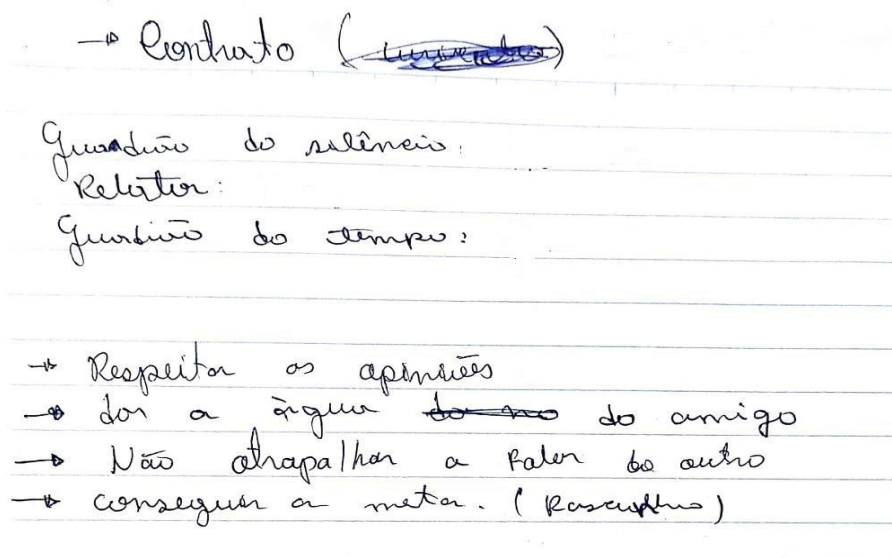 → Contrato
Guardião do silêncio:
Relator:
Guardião do tempo:
→ Respeitar as opiniões
→ dar a água do amigo
→ Não atrapalhar a falar do outro
→ conseguir a meta. (Rascunho)